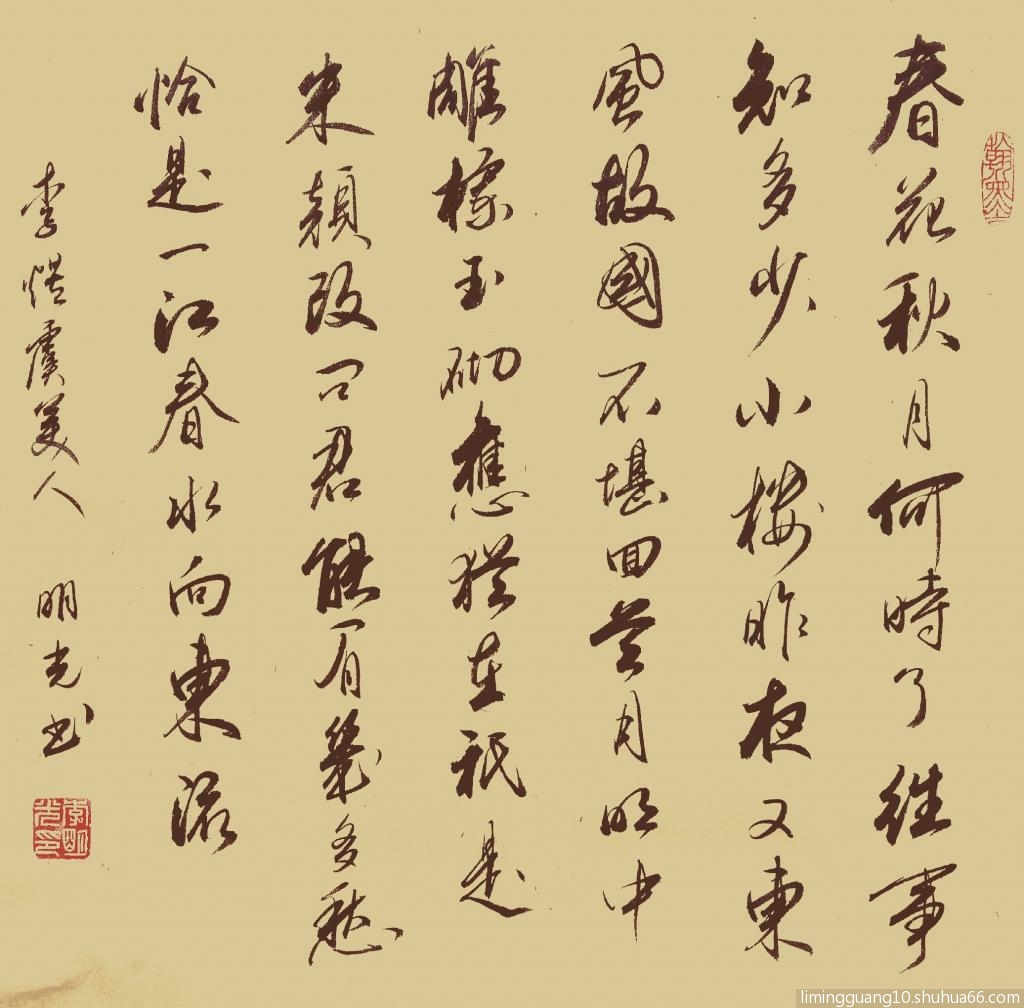 翰墨
春花秋月何時了往事
知多少小樓昨夜又東
風故國不堪回首月明中
雕欄玉砌應猶在祇是
朱顔改問君能有幾多愁
恰是一江春水向東流
李煜虞美人 明光书
李明光印
limingguang10.shuhua66.com